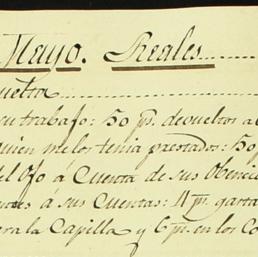 Mayo. Reales
vuelta
su trabajo: 50 ps. devueltos a
quien me los tenia prestados: 50 p
del Ofo á Cuenta de sus Obencio
á sus Cuentas: 4 ps. gasta
para la Capilla y 6 ps. en los Co